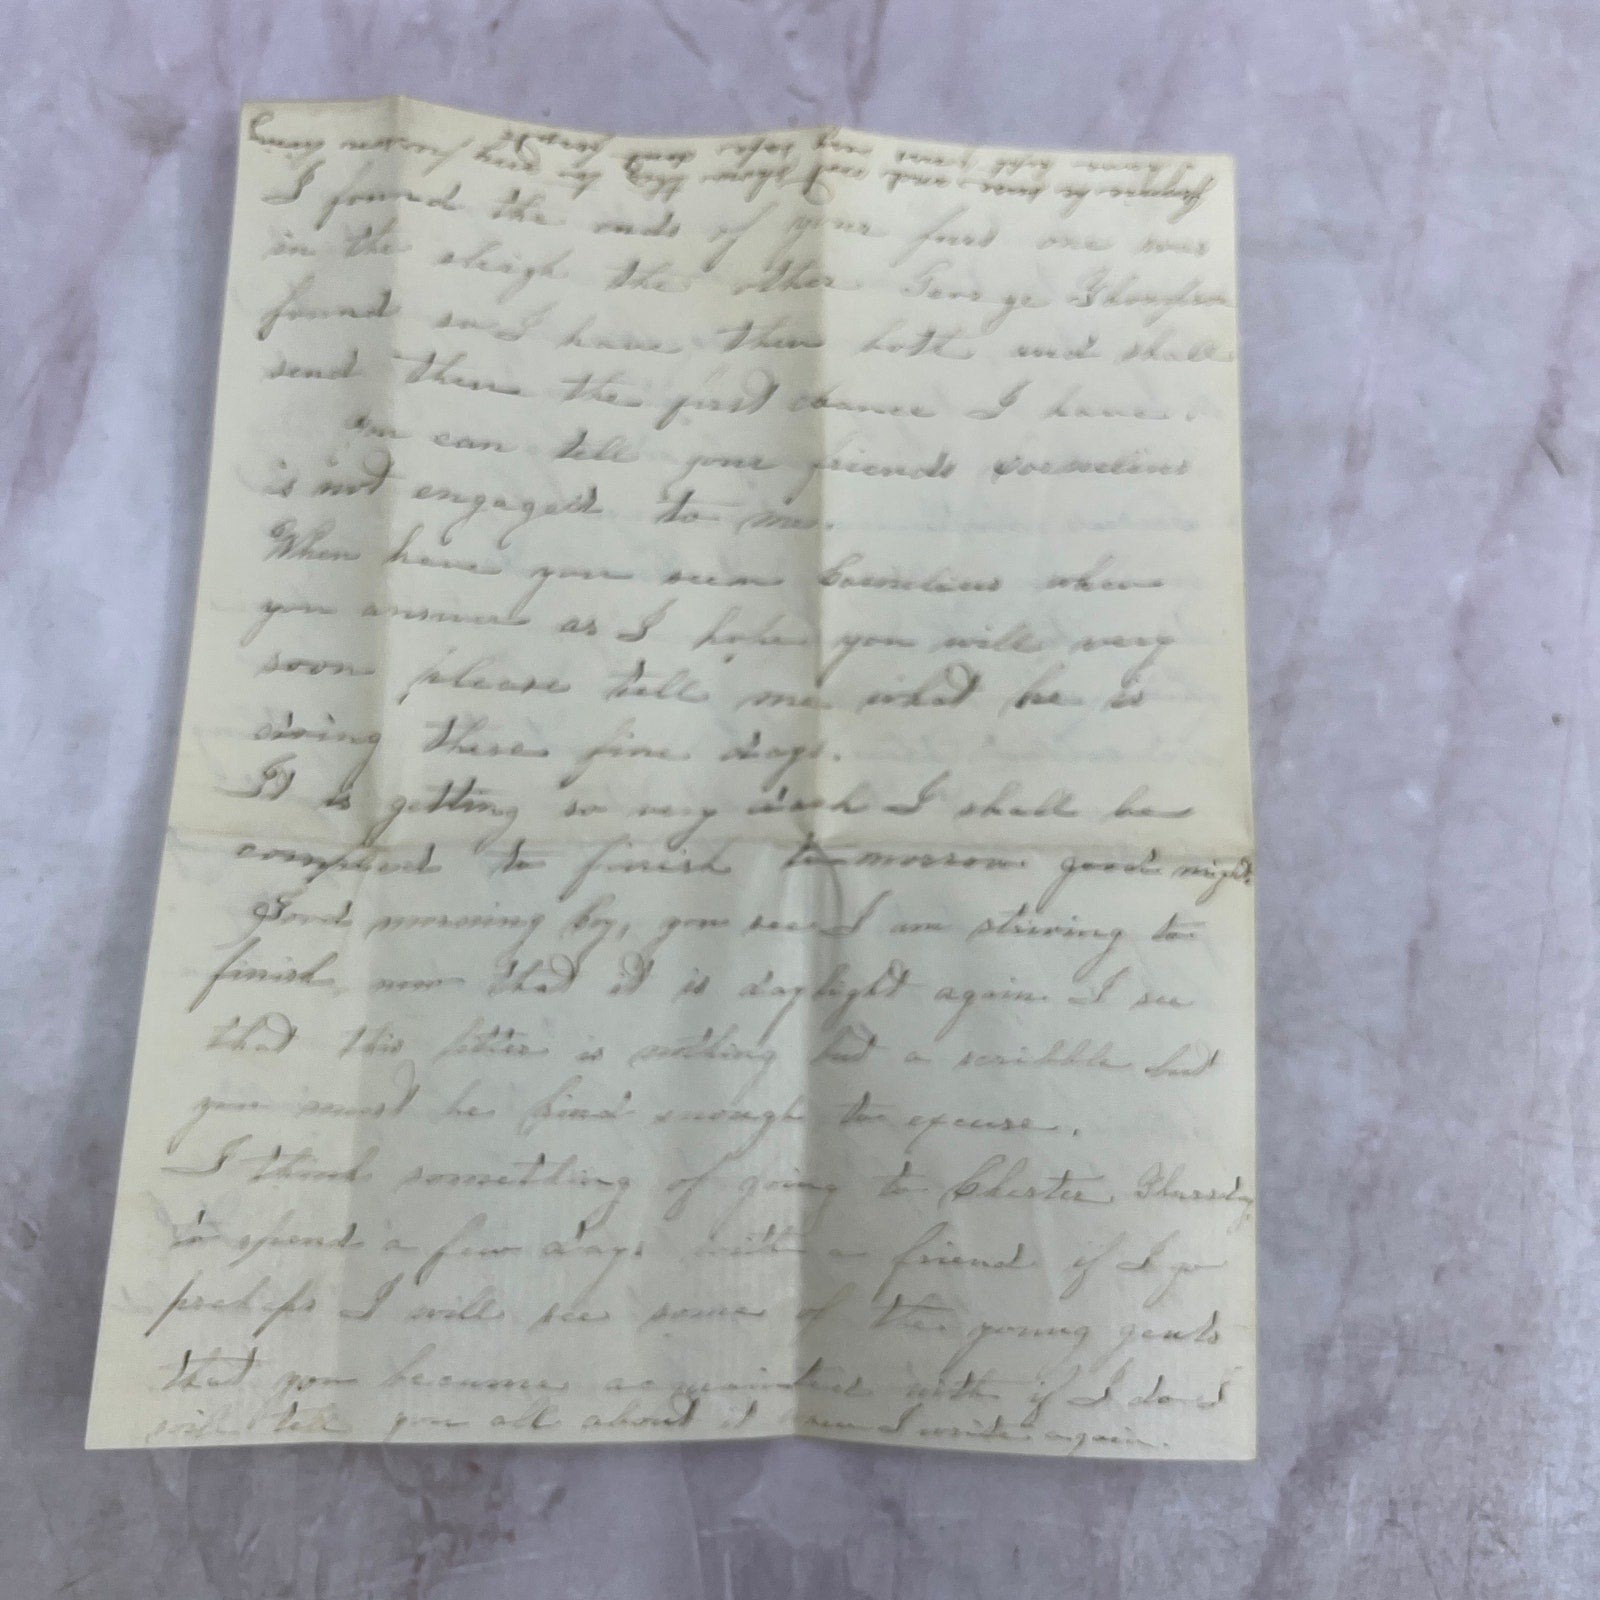 I found the ends of your furs one was
in the sleigh the other George Thompson
found so I have them both and shall
send them the first chance I have.
you can tell your friends Cornelius
is not engaged to me.
When have you seen Cornelius when
you answer as I hope you will very
soon please tell me what he is
doing these fine days.
It is getting so very dark I shall be
compled to finish to morrow good night.
Good morning boy, you see I am striving to
finish now that it is daylight again I see
that this letter is nothing but a scribble but
you must be kind enough to excuse.
I think something of going to Chester Thursday
to spend a few days with a friend if I go
perhaps I will see some of the young gents
that you became acquainted with if I do I
will tell you all about it when I write again.